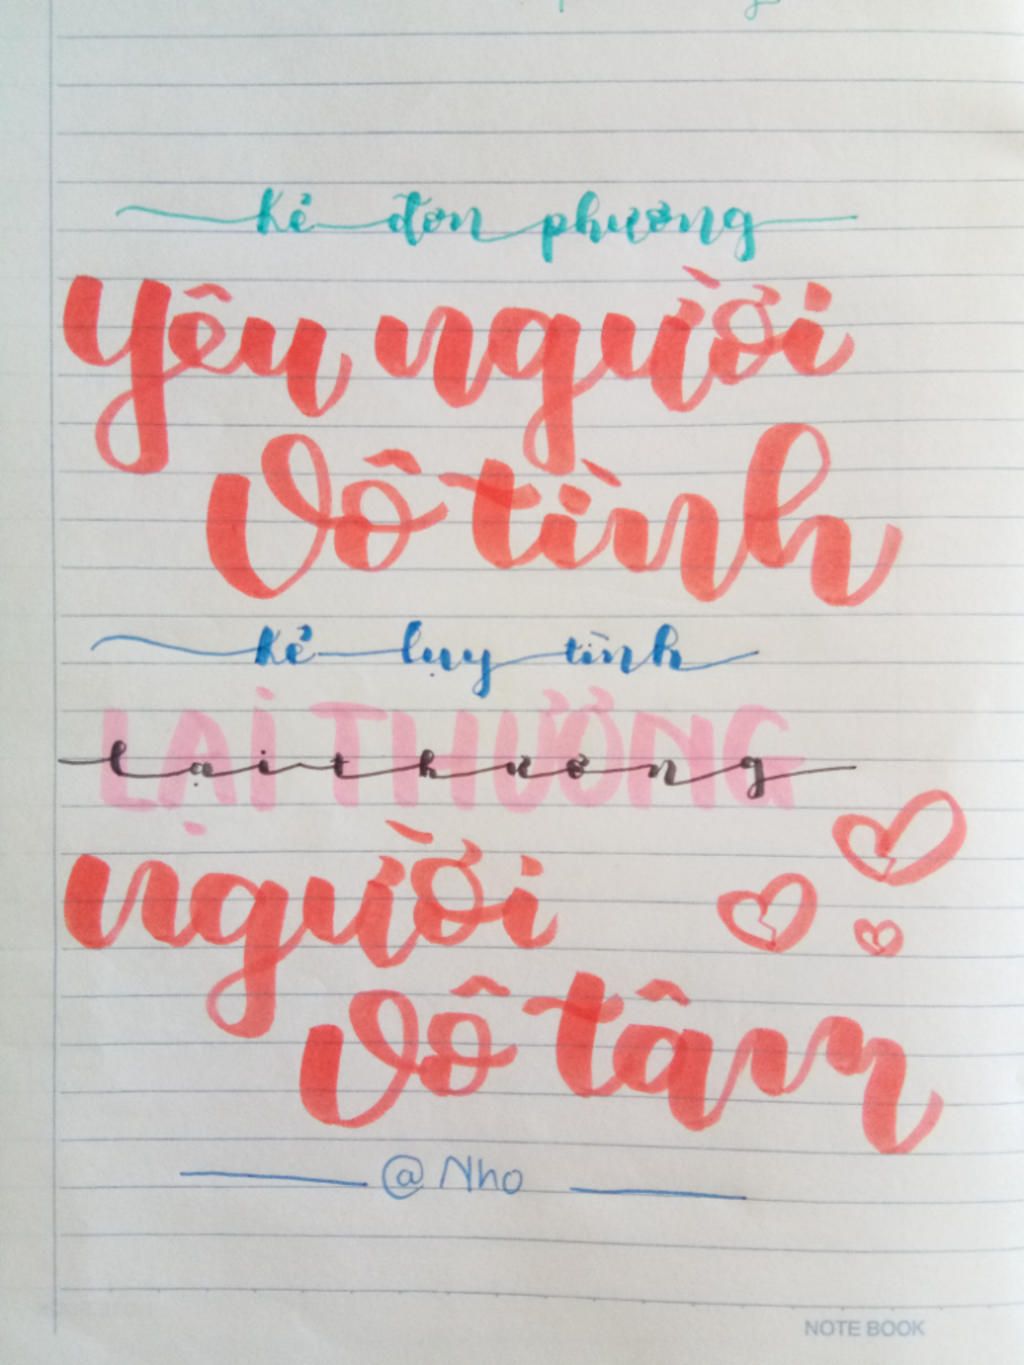 Kẻ đơn phương
Yêu người
Vô tình
Kẻ lụy tình
LẠI THƯƠNG
lại thương
người
Vô tâm
@Nho
NOTE BOOK